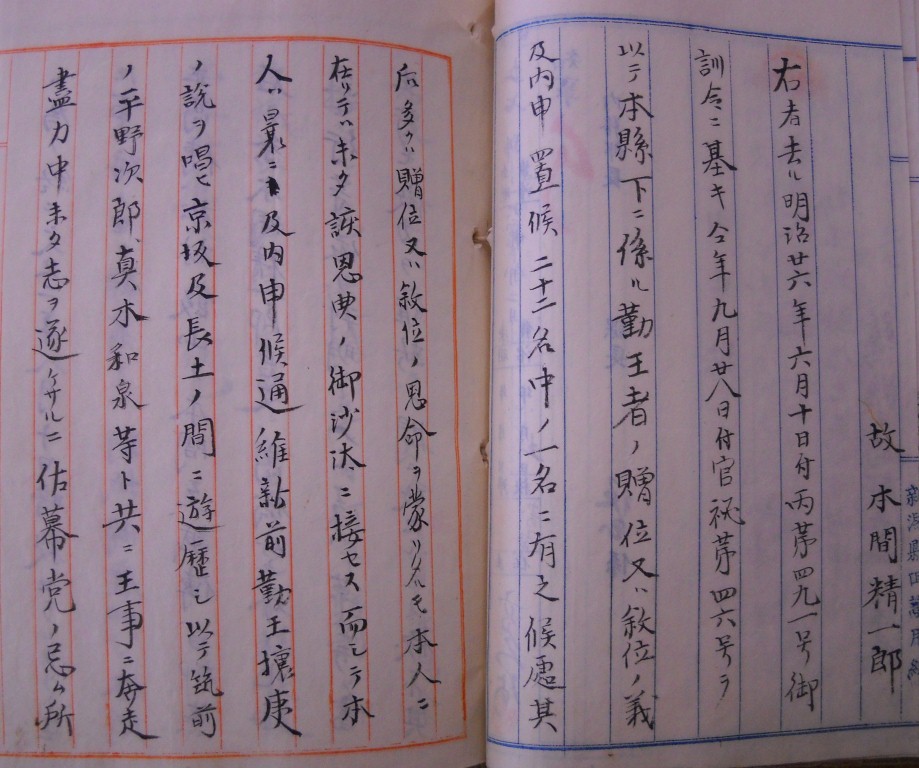 故 本間精一郎
右者去ル明治廿六年六月十日付丙第四九一号御
訓令ニ基キ仝年九月廿八日付官秘第四六号ヲ
以テ本縣下ニ係ル勤王者ノ贈位又ハ敘位ノ義
及内申置候二十二名中ノ一名ニ有之候處其
后多クハ贈位又ハ敘位ノ恩命ヲ蒙リタルモ本人ニ
在リテハ未タ該恩典ノ御沙汰ニ接セス而シテ本
人ハ曩ニ及内申候通維新前勤王攘夷
ノ説ヲ唱ヒ京坂及長土ノ間ニ遊歴シ以テ筑前
ノ平野次郎、真木和泉等ト共ニ王事ニ奔走
盡力中未タ志ヲ遂ケサルニ佐幕党ノ忌ム所